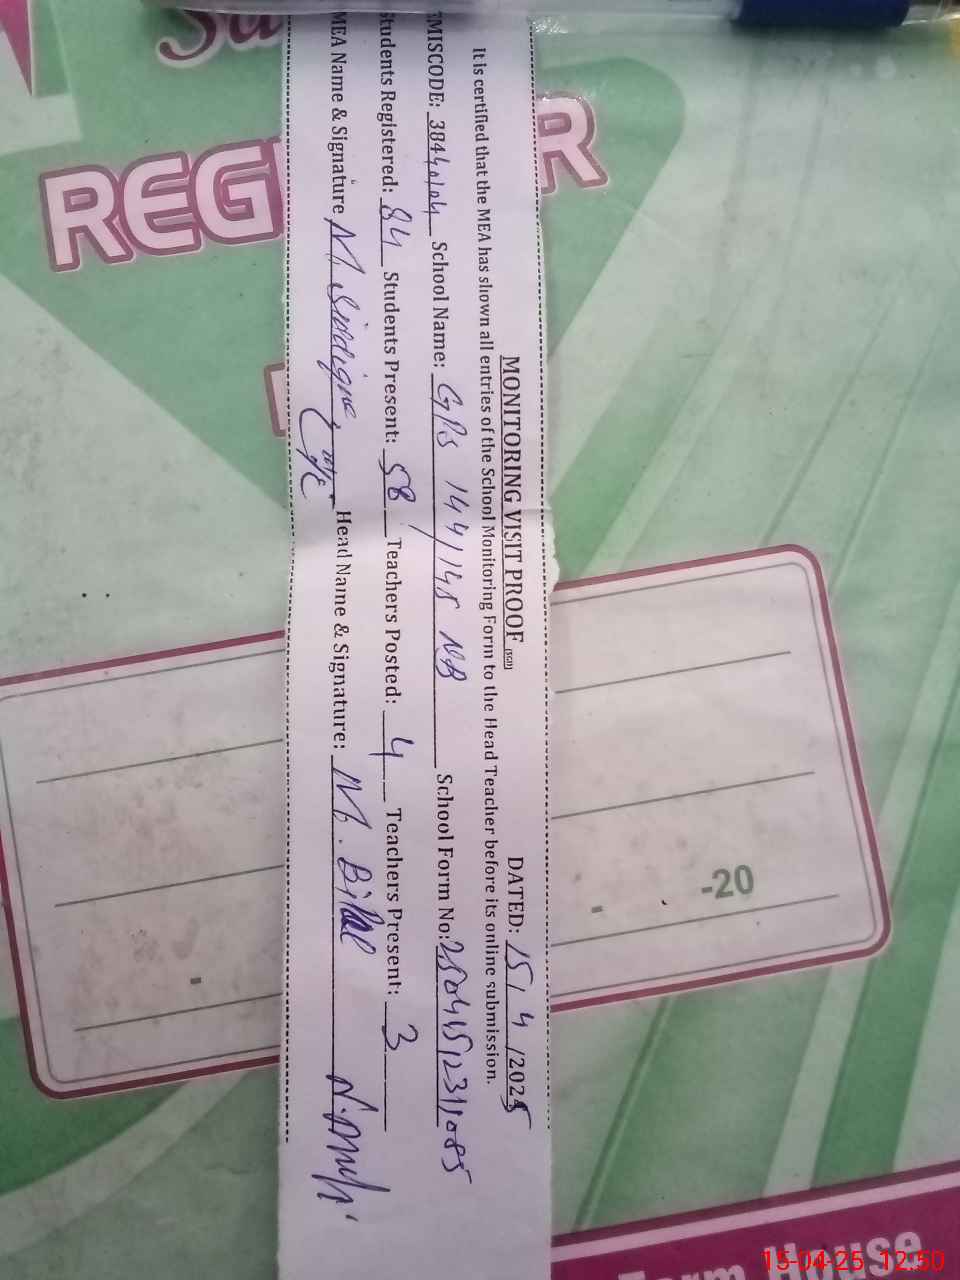 MONITORING VISIT PROOF (SGH) DATED: 15/4/2025
It is certified that the MEA has shown all entries of the School Monitoring Form to the Head Teacher before its online submission.
EMISCODE: 38440104 School Name: GPS 144/145 NB School Form No: 25041512311085
Students Registered: 84 Students Present: 58 Teachers Posted: 4 Teachers Present: 3
MEA Name & Signature M Siddique, Head Name & Signature: M. Bilal
REG ER
-20
House
15-04-25 12:50